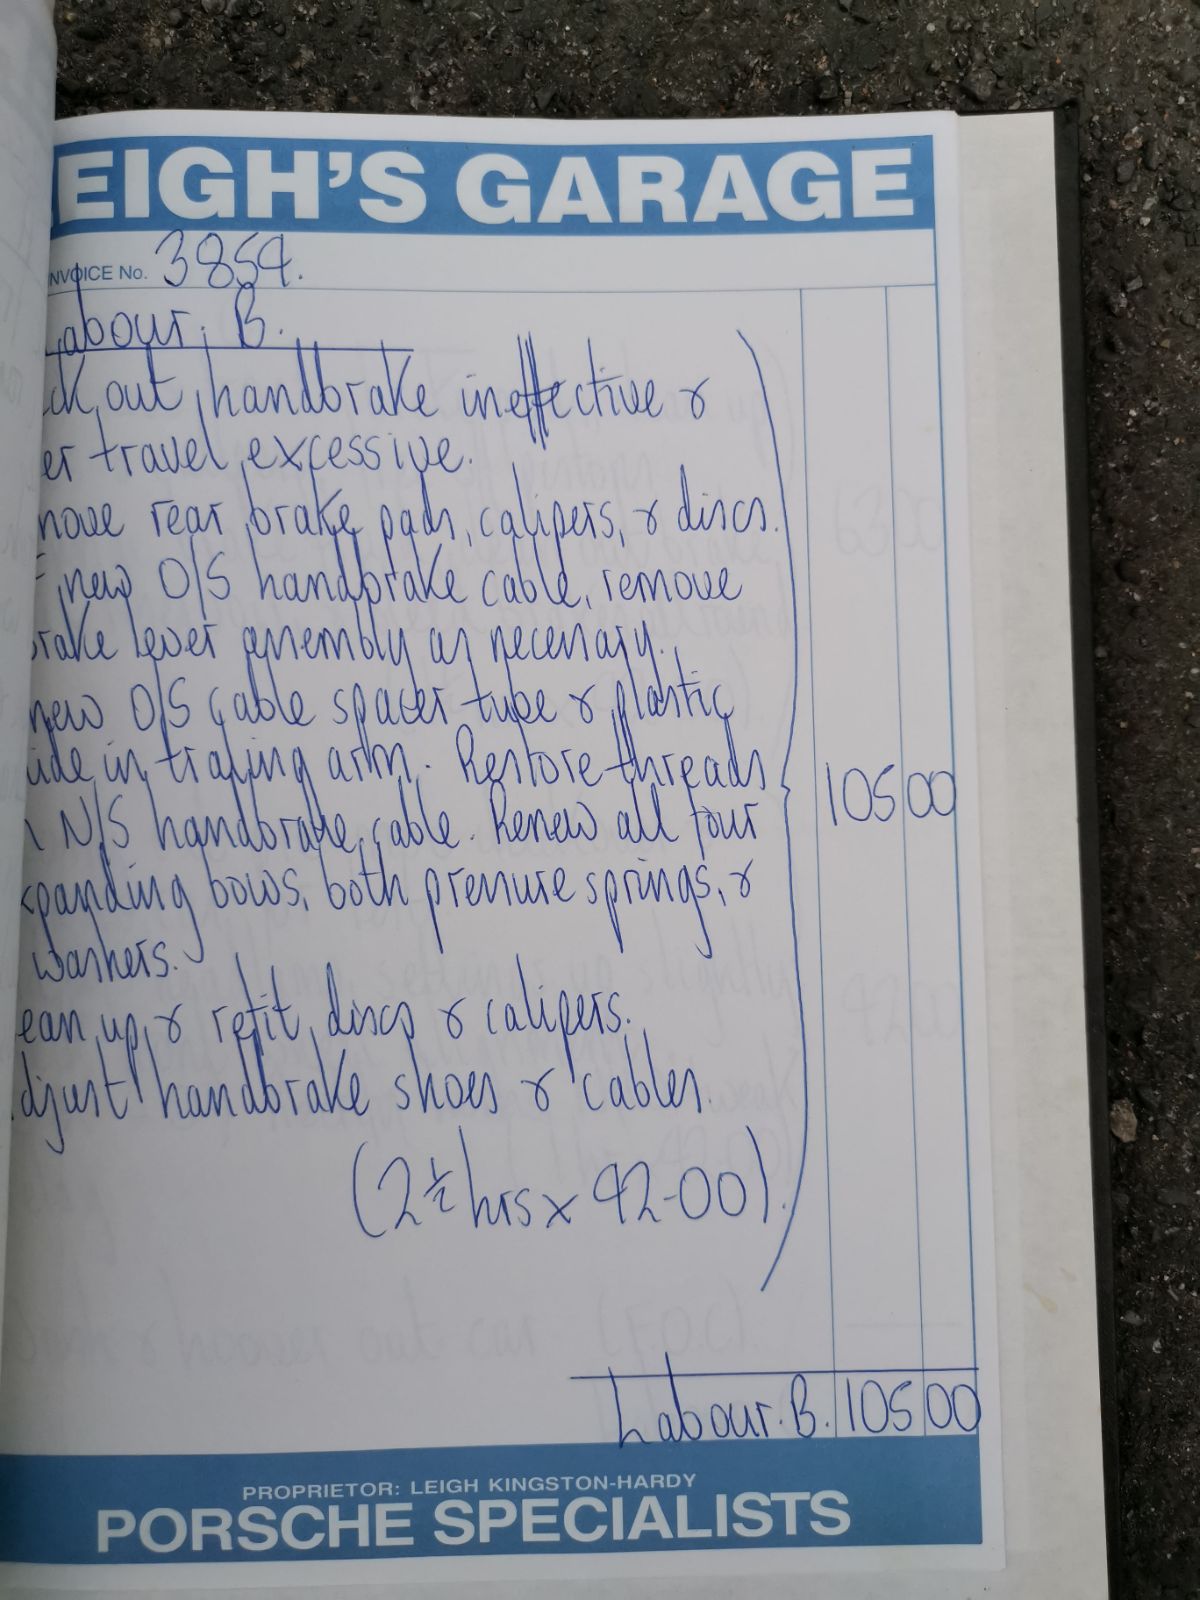 EIGH'S GARAGE
INVOICE No. 3854.
Labour. B.
ck out, handbrake ineffective &
er travel excessive.
move rear brake pads, calipers, & discs.
new O/S handbrake cable, remove
brake lever assembly as necessary.
new O/S cable spacer tube & plastic
uide in trailing arm. Restore threads
N/S handbrake cable. Renew all four 105 00
xpanding bows, both pressure springs, &
washers.
ean up & refit discs & calipers.
djust handbrake shoes & cables.
(2½ hrs x 42-00).
Labour. B. 105 00
PROPRIETOR: LEIGH KINGSTON-HARDY
PORSCHE SPECIALISTS